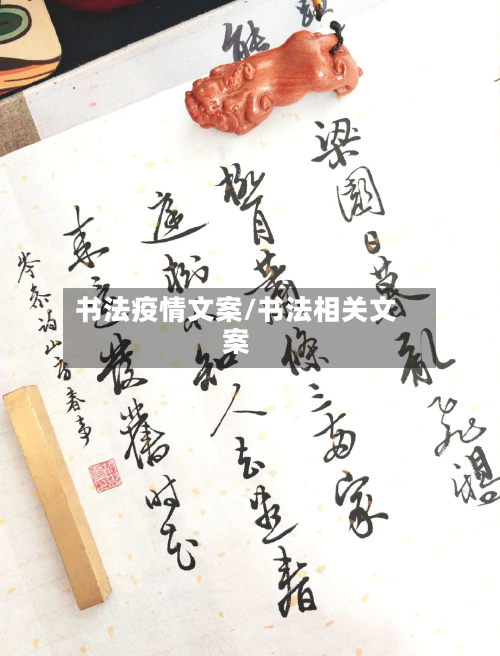 书法疫情文案/书法相关文
案
梁園日暮亂飛鴉
極目蕭條三兩家
庭樹不知人去盡春
來還發舊時花
岑參詩山房春事